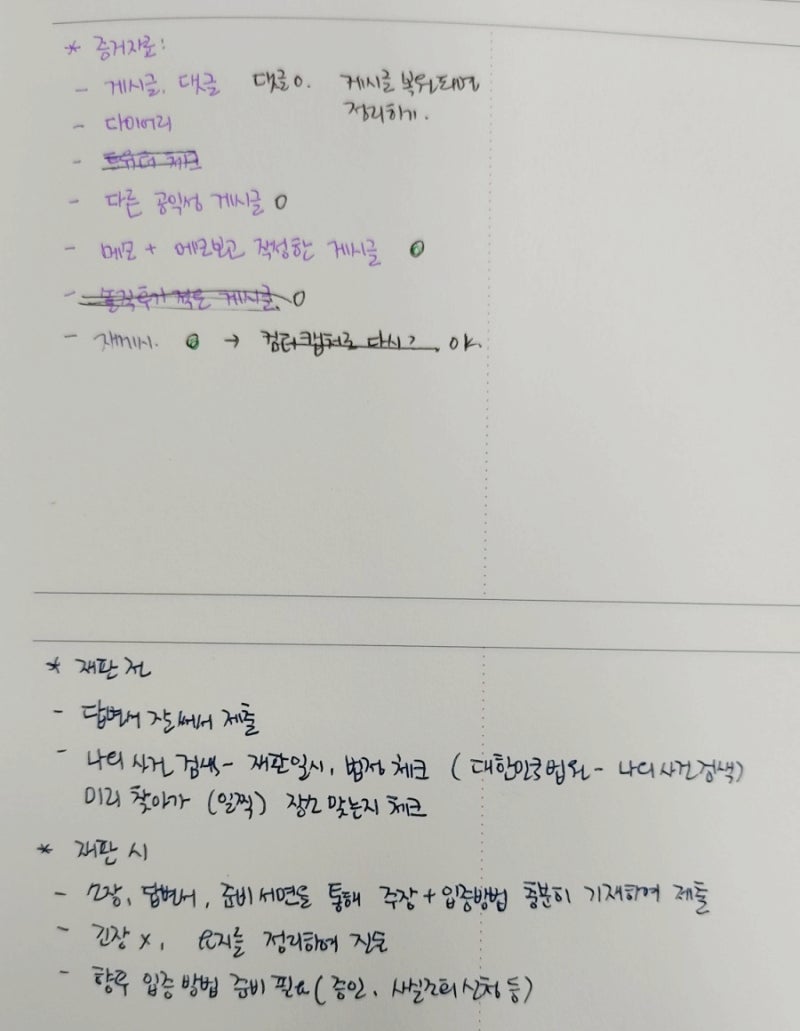 * 증거자료:
- 게시글, 댓글 댓글 0. 게시글 복원되면
정리하기.
- 다이어리
- 트위터 체크
- 다른 공익성 게시글 O
- 메모 + 메모보고 작성한 게시글 O
- 솔직후기 적은 게시글 O
- 재게시. O → 컴터캡처로 다시? OK.
* 재판 전
- 답변서 잘 써서 제출
- 나의 사건 검색 - 재판일시, 법정 체크 (대한민국법원 - 나의 사건검색)
미리 찾아가 (일찍) 장소 맞는지 체크
* 재판 시
- 소장, 답변서, 준비서면을 통해 주장 + 입증방법 충분히 기재하여 제출
- 긴장 x, 요지를 정리하여 진술
- 향후 입증 방법 준비 필요 (증인, 사실조회 신청 등)